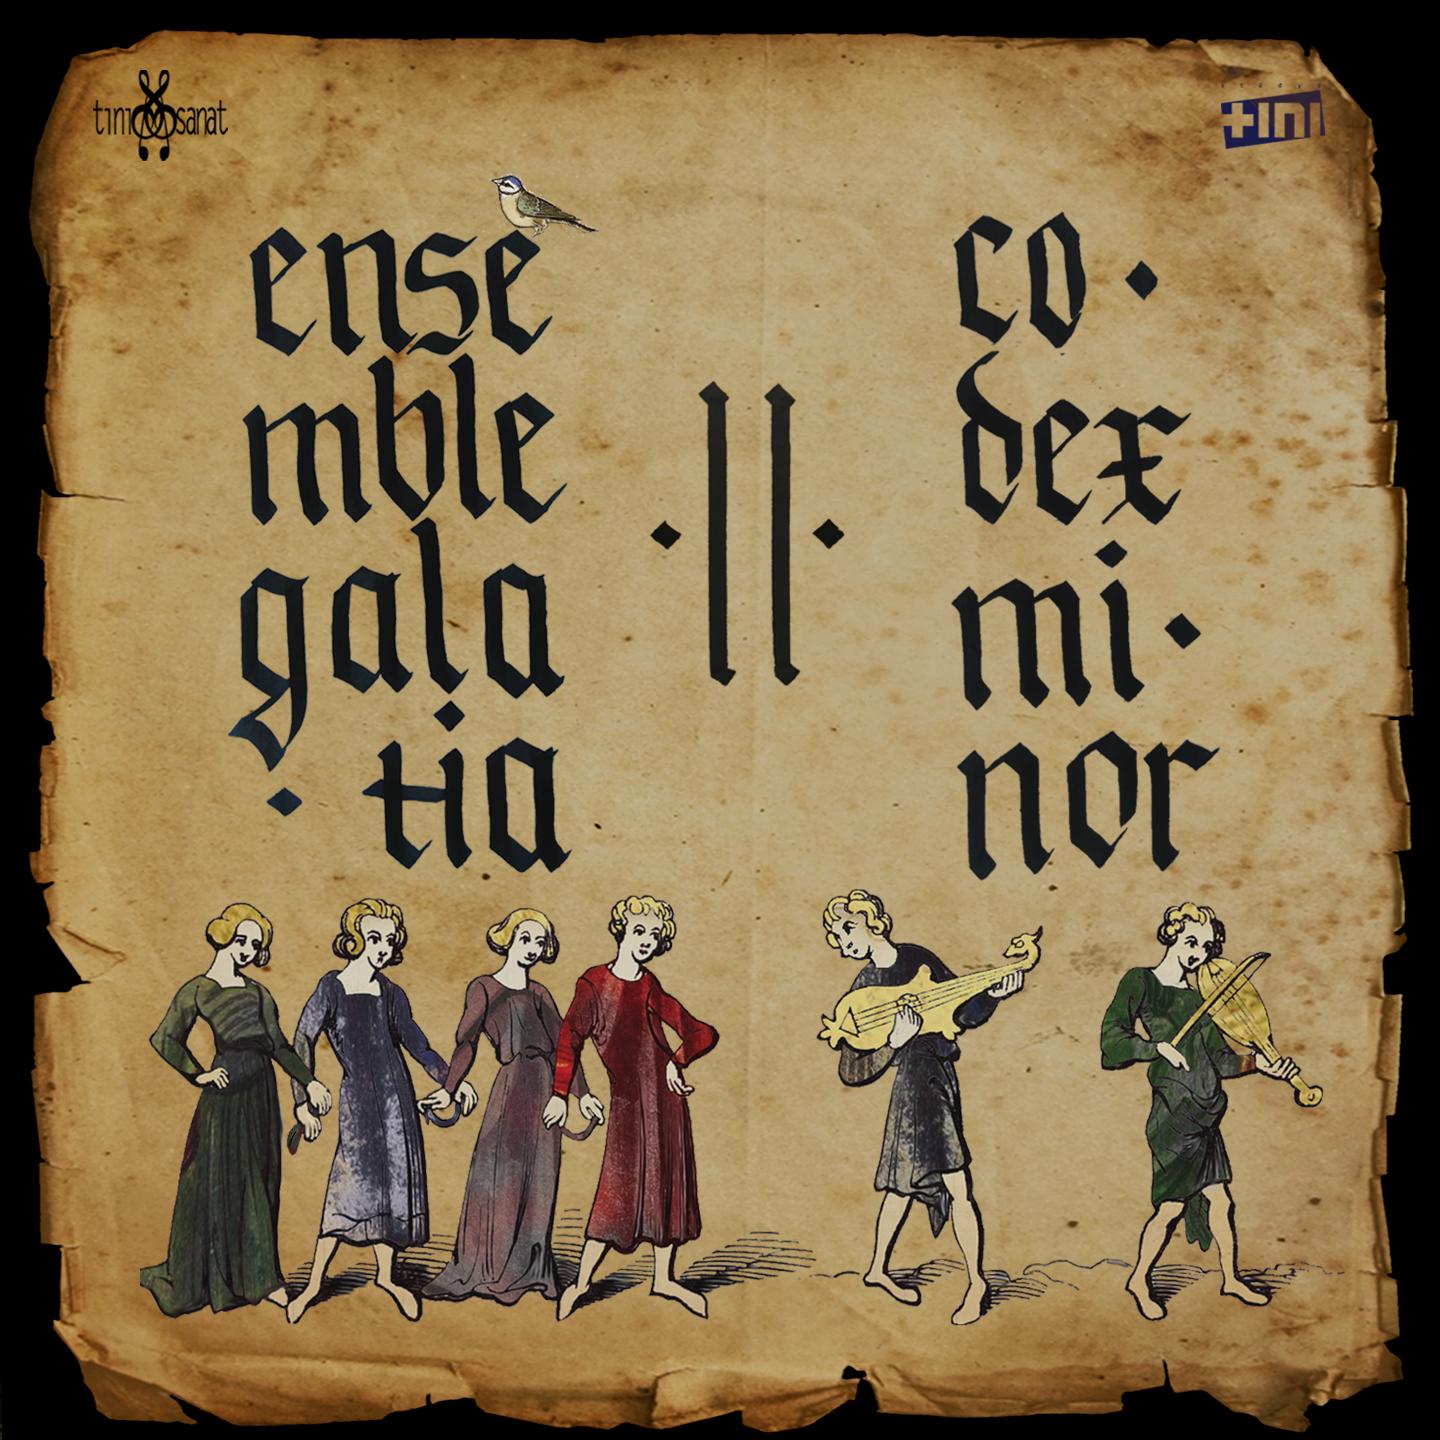 tini sanat
tini
ense
mble
gala
· tia
· II ·
co ·
dex
mi ·
nor